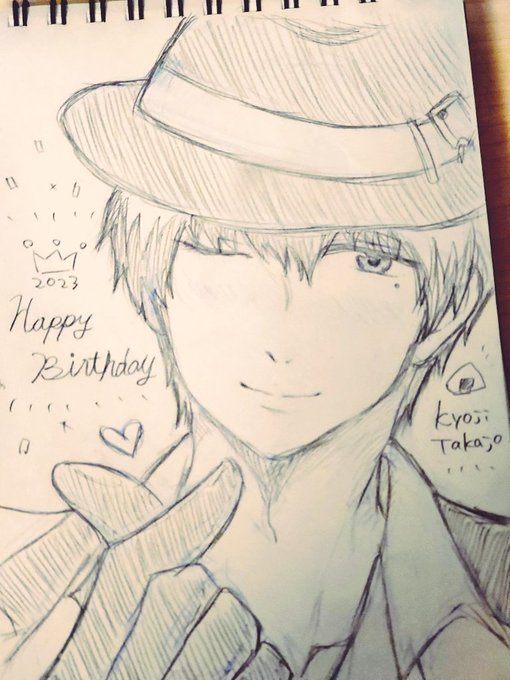 2023
Happy
Birthday
Kyoji
Takajo